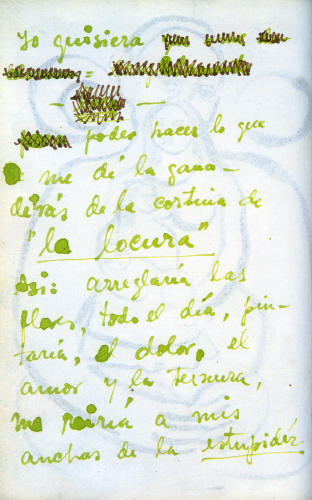 Yo quisiera
poder hacer lo que
me dé la gana—
detrás de la cortina de
"la locura"
Asi: arreglaría las
flores, todo el día, pin-
taría, el dolor, el
amor y la ternura,
me reiría a mis
anchas de la estupidéz